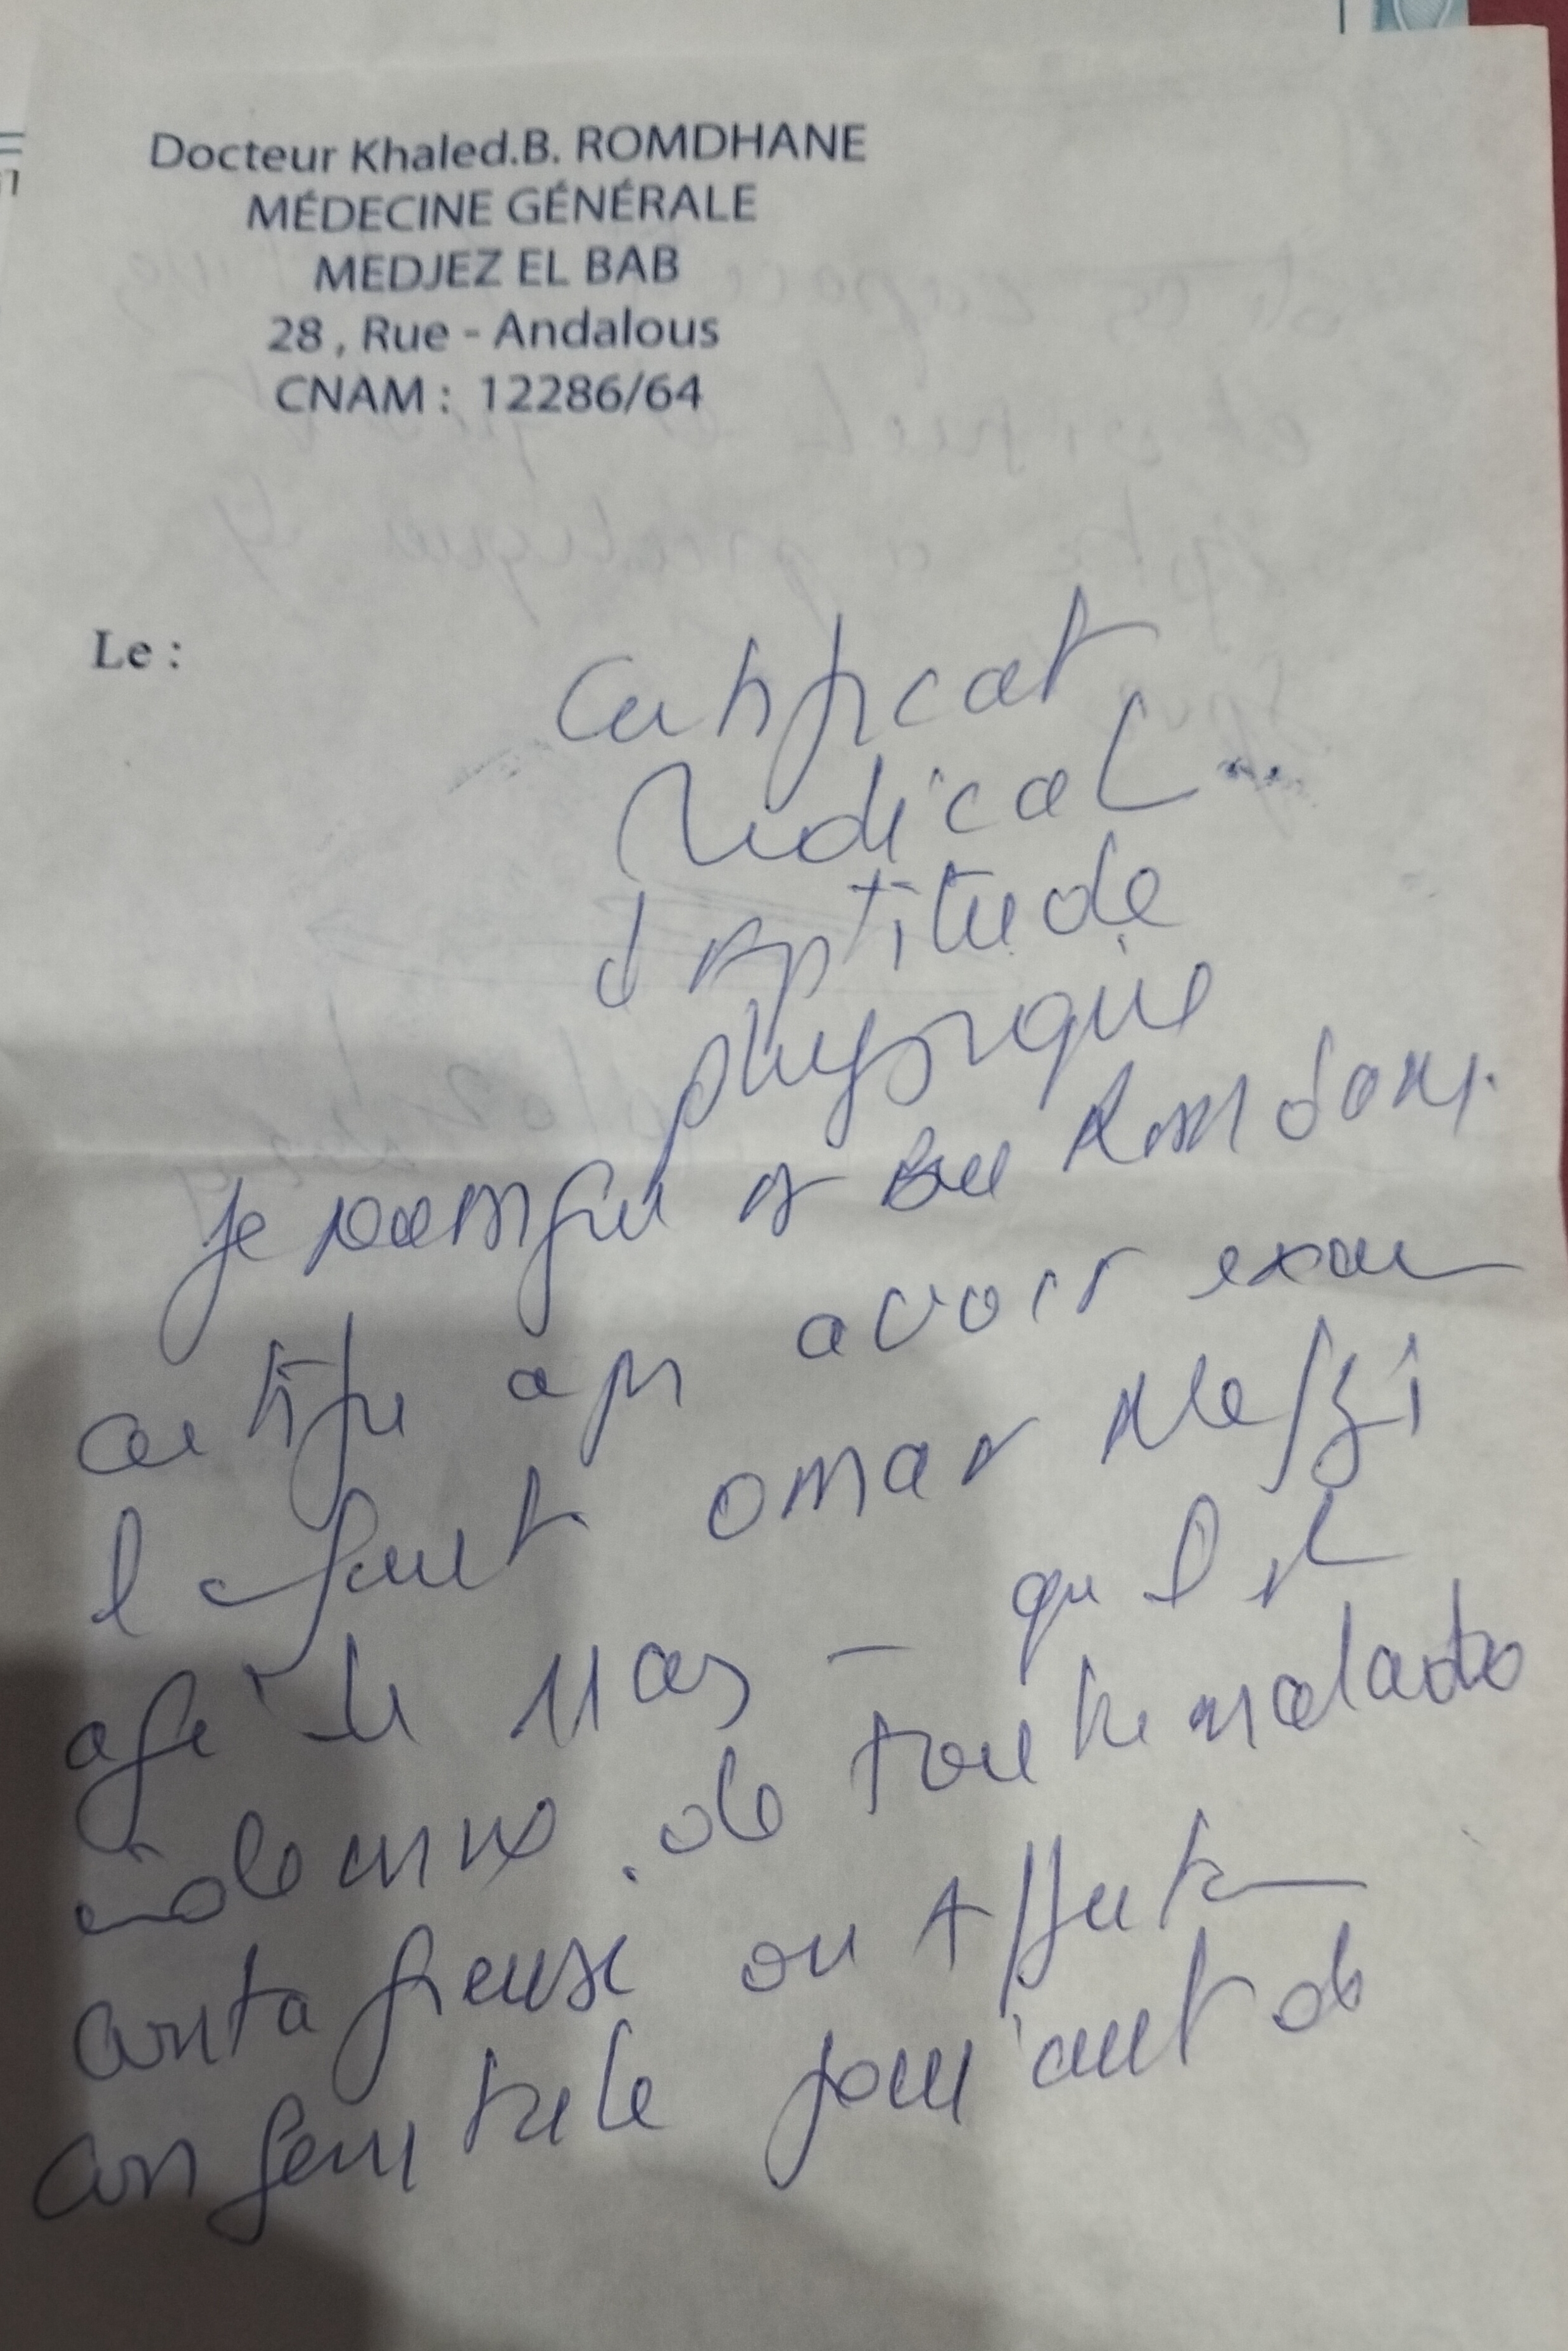 Docteur Khaled.B. ROMDHANE
MÉDECINE GÉNÉRALE
MEDJEZ EL BAB
28 , Rue - Andalous
CNAM : 12286/64
Le :
Certificat
Médical
d'Aptitude
physique
Je soussigné Dr Ben Romdane
certifie apr avoir exam
l'enfant omar Nefzi
agé de 11 ans - qu'il est
indemne de toute maladie
contagieuse ou Affection
congenitale jouiant de